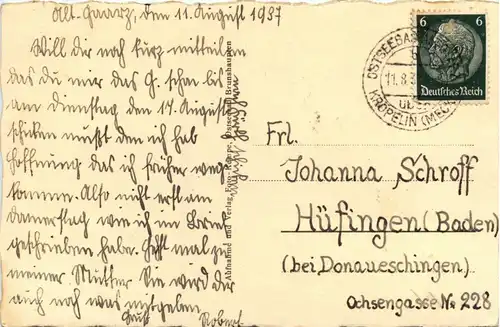 Alt-Gaarz, den 11. August 1937
Will dir noch kurz mitteilen
das du mir das G. schon bis
am Dienstag den 17. August
schicken müßt den ich hab
Hoffnung das ich früher weg
komme. Also nicht erst am
Donnerstag wie ich im Brief
geschrieben habe. Geht mal zu
meiner Mutter Sie wird dir
auch noch was mitgeben
Gruß Robert
Aufnahme und Verlag
Brunshaupten
6 6
Deutsches Reich
OSTSEEBAD
11.8.3
ÜBER
KRÖPELIN (MECKL
Frl.
Johanna Schroff
Hüfingen (Baden)
(bei Donaueschingen)
Ochsengasse No 228